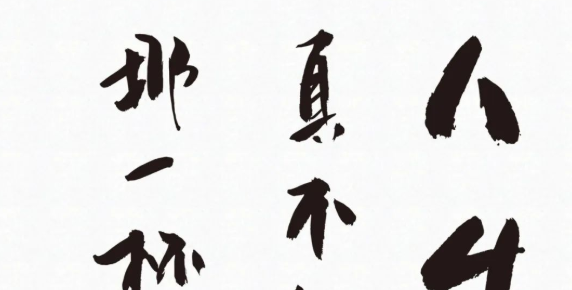 人生
真不
那一杯